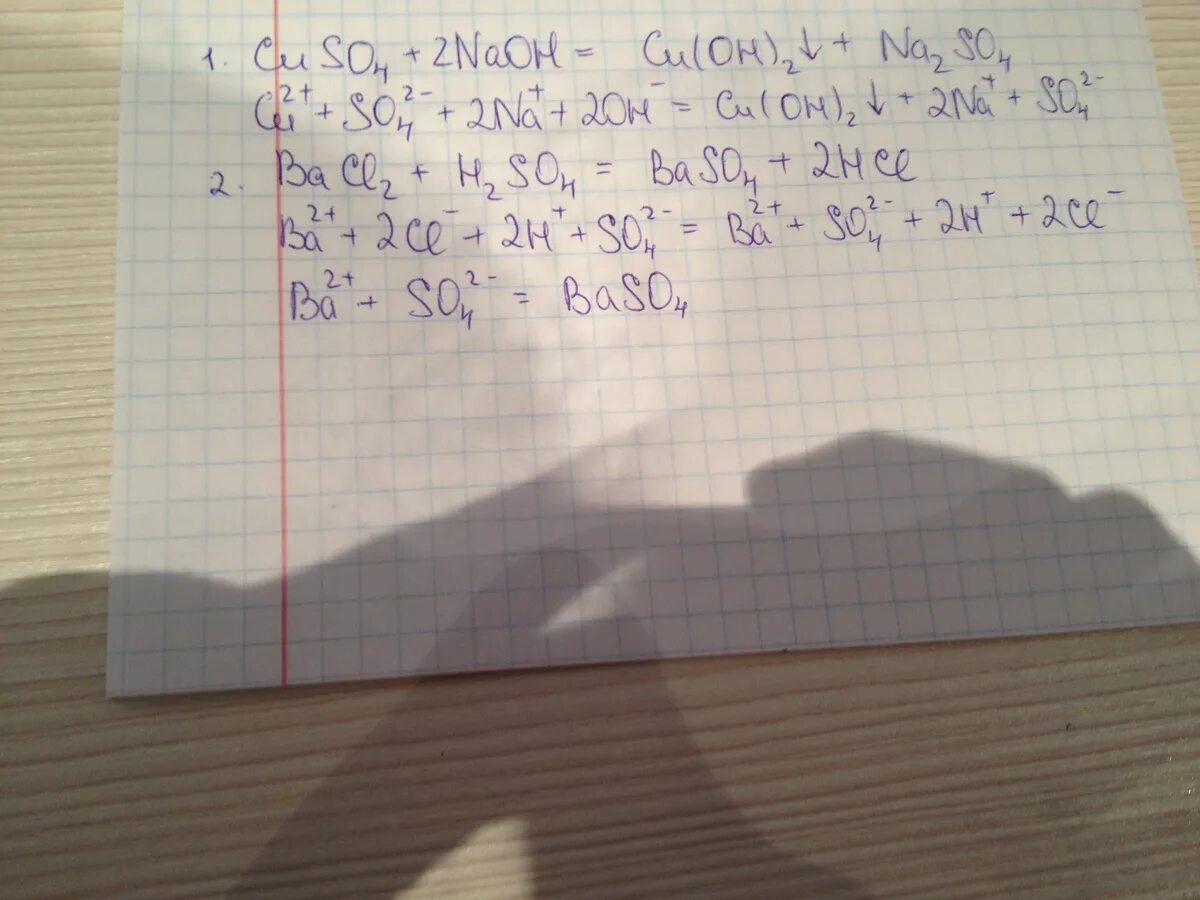 1. CuSO₄ + 2NaOH = Cu(OH)₂↓ + Na₂SO₄
Cu²⁺ + SO₄²⁻ + 2Na⁺ + 2OH⁻ = Cu(OH)₂↓ + 2Na⁺ + SO₄²⁻
2. BaCl₂ + H₂SO₄ = BaSO₄ + 2HCl
Ba²⁺ + 2Cl⁻ + 2H⁺ + SO₄²⁻ = Ba²⁺ + SO₄²⁻ + 2H⁺ + 2Cl⁻
Ba²⁺ + SO₄²⁻ = BaSO₄